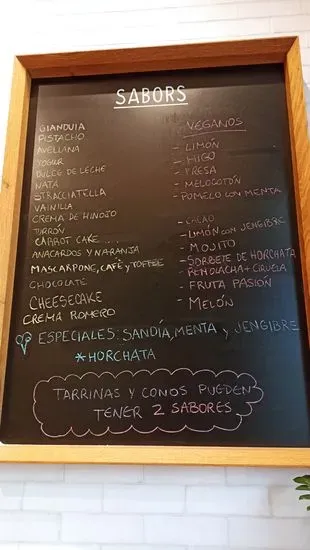 SABORS
GIANDUIA
PISTACHO
AVELLANA
YOGUR
DULCE DE LECHE
NATA
STRACCIATELLA
VAINILLA
CREMA DE HINOJO
TURRÓN
CARROT CAKE
ANACARDOS Y NARANJA
MASCARPONE, CAFÉ Y TOFFEE
CHOCOLATE
CHEESECAKE
CREMA ROMERO
VEGANOS
- LIMÓN
- HIGO
- FRESA
- MELOCOTÓN
- POMELO CON MENTA
- CACAO
- LIMÓN CON JENGIBRE
- MOJITO
- SORBETE DE HORCHATA
- REMOLACHA + CIRUELA
- FRUTA PASIÓN
- MELÓN
ESPECIALES: SANDÍA, MENTA y JENGIBRE
*HORCHATA
TARRINAS Y CONOS PUEDEN
TENER 2 SABORES